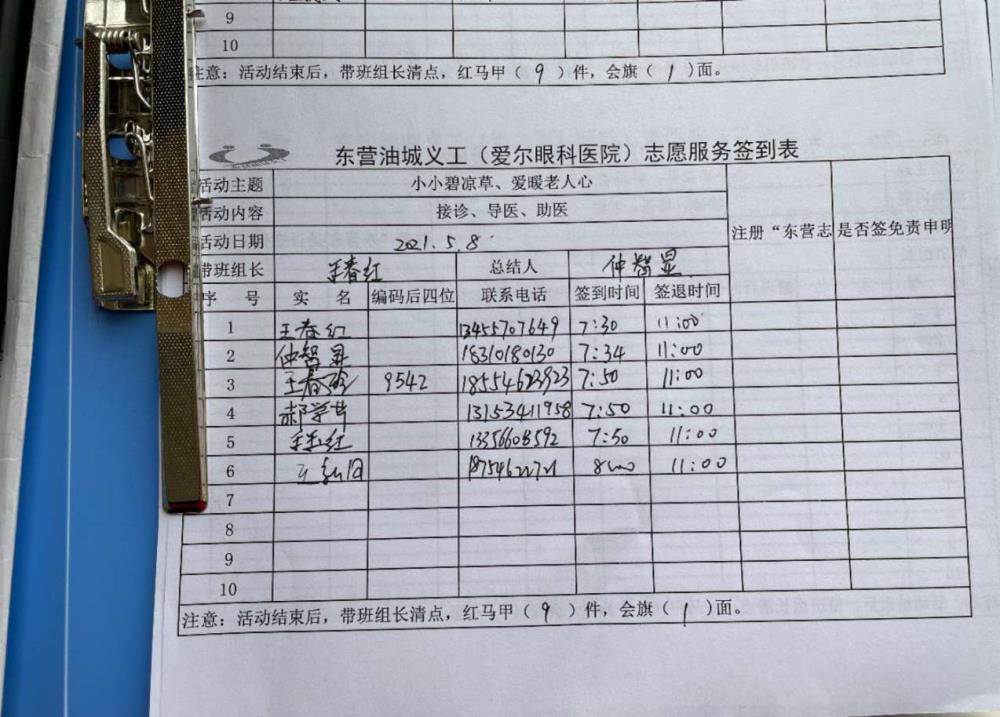 9
10
注意：活动结束后，带班组长清点，红马甲（ 9 ）件，会旗（ 1 ）面。
东营油城义工（爱尔眼科医院）志愿服务签到表
活动主题 小小碧凉草、爱暖老人心
活动内容 接诊、导医、助医 注册“东营志 是否签免责申明
活动日期 2021.5.8
带班组长 王春红 总结人 仲智显
序 号 实 名 编码后四位 联系电话 签到时间 签退时间
1 王春红 13455707649 7:30 11:00
2 仲智显 18310180130 7:34 11:00
3 王春玲 9542 18554623923 7:50 11:00
4 郝学甘 13153411958 7:50 11:00
5 13356608592 7:50 11:00
6 11:00
7
8
9
10
注意：活动结束后，带班组长清点，红马甲（ 9 ）件，会旗（ 1 ）面。